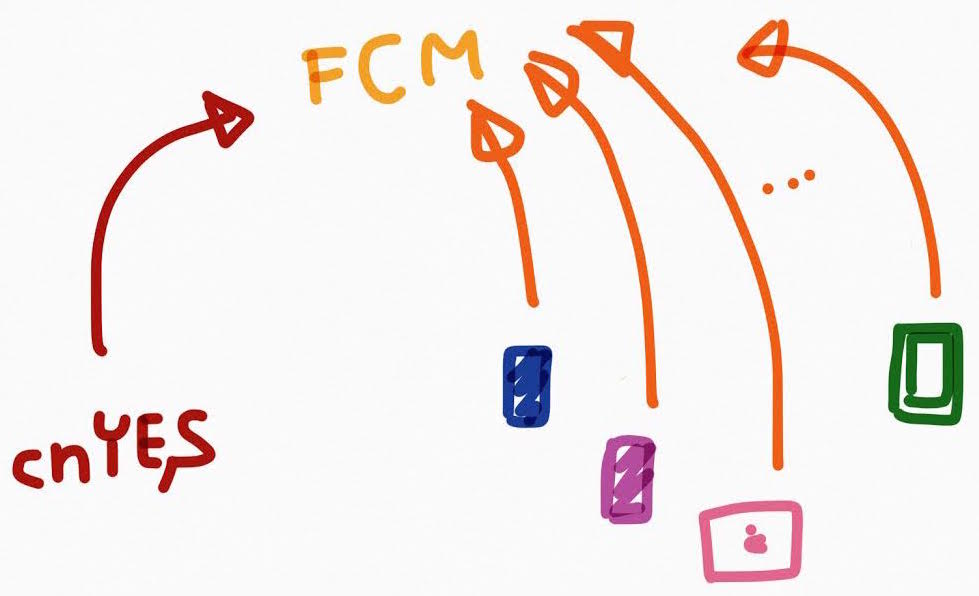 FCM
cnYES